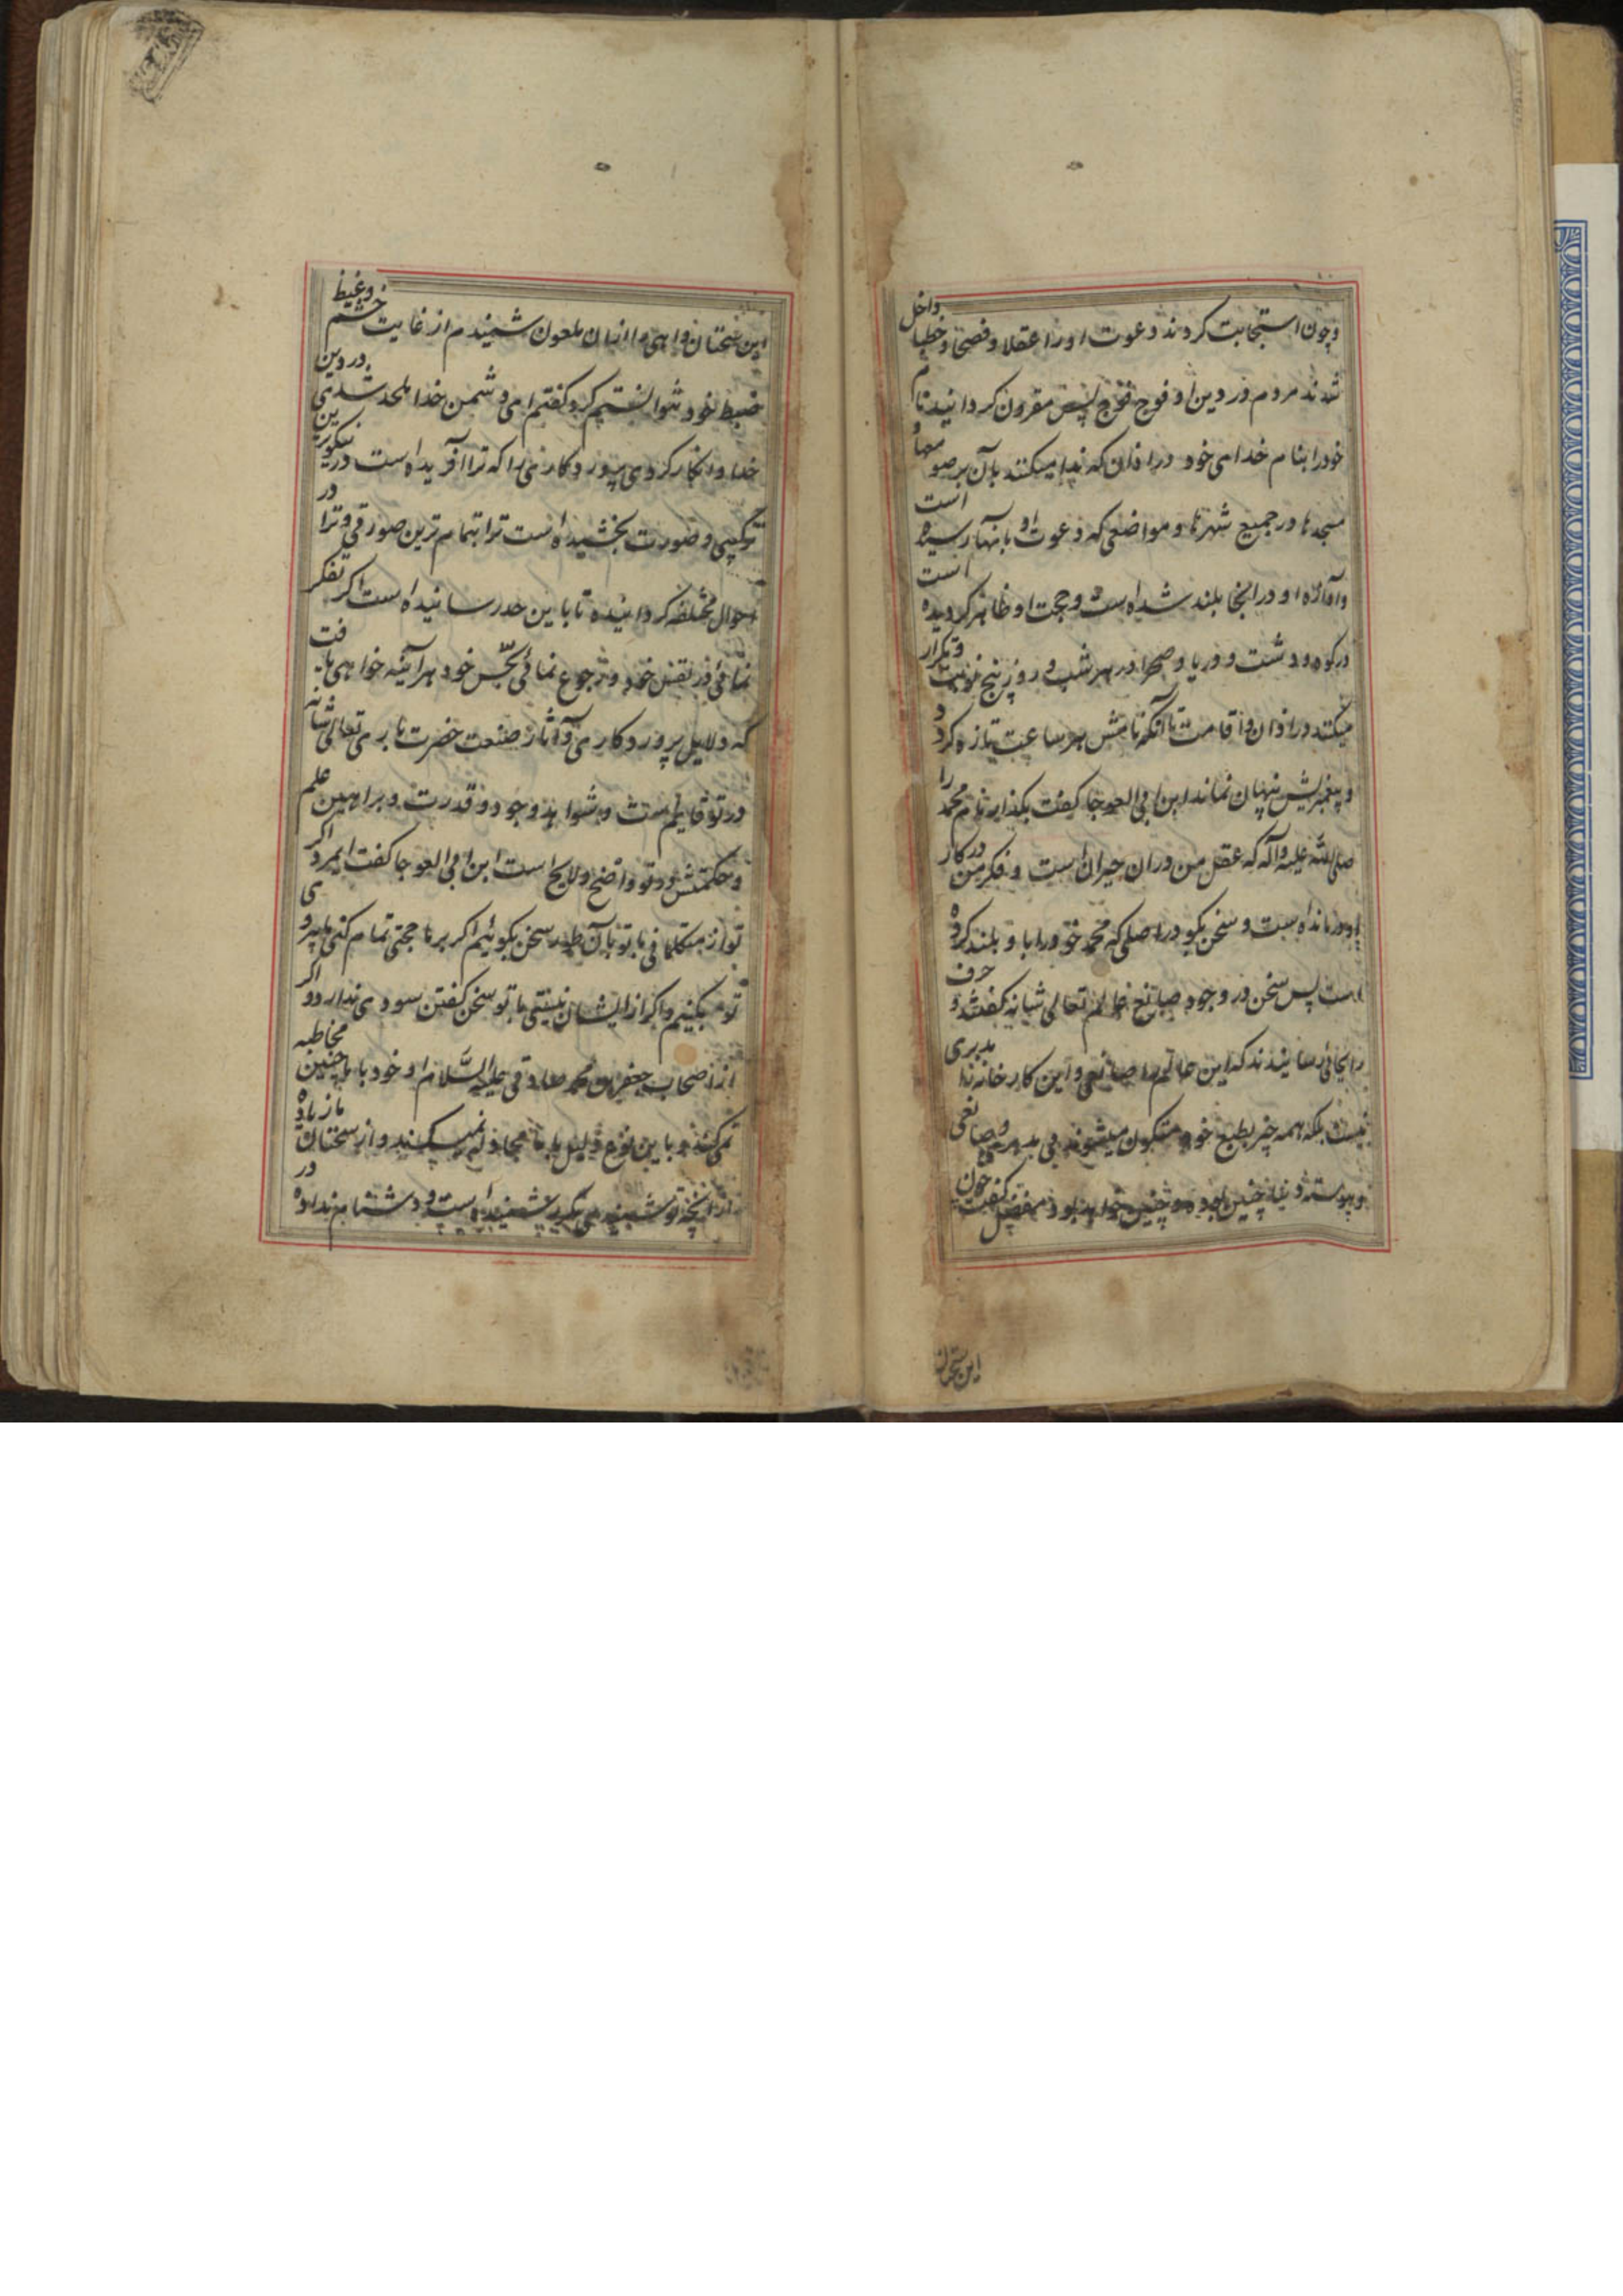 و چون استجابت کردند دعوت او را عقلا و فصحا و خطبا داخل
شدند مردم در دین او فوج فوج پس مقرون گردانید نام
خود را بنام خدای خود در اذان که ندا میکنند بآن بر صومعها و
مسجدها در جمیع شهرها و مواضعی که دعوت او بآنها رسیده است
و آوازه او در آنجا بلند شده است و حجت او ظاهر گردیده است
در کوه و دشت و دریا و صحرا در هر شب و روز پنج نوبت و تکرار
میکنند در اذان و اقامت تا آنکه نامش هر ساعت تازه گردد
و پیغمبریش پنهان نماند ابن ابی العوجا گفت بگذار نام محمد را
صلی الله علیه و آله که عقل من در آن حیران است و فکر من در کار
او درمانده است و سخن بگو در اصلی که محمد خود را باو بلند کرده
است پس سخن در وجود صانع عالم تعالی شانه گفتند و حرف
را بجائی رسانیدند که این عالم را صانعی و این کارخانه را مدبری
نیست بلکه همه چیز بطبع خود متکون میشوند بی مدبری و صانعی
و پیوسته دنیا چنین بوده و چنین خواهد بود مفضل گفت چون
این سخنان
این سخنان واهی را از آن ملعون شنیدم از غایت خشم و غیظ
ضبط خود نتوانستم کرد گفتم ای دشمن خدا ملحد شدی در دین
خدا و انکار کردی پروردگاری را که ترا آفریده است در نیکوترین
ترکیبی و صورت بخشیده است ترا بتمام‌ترین صورتی و ترا در
احوال مختلفه گردانیده تا باین حد رسانیده است اگر تفکر
نمائی در نفس خود و رجوع نمائی بحس خود هرآینه خواهی یافت
که دلایل پروردگاری و آثار صنعت حضرت باری تعالی شانه
در تو قایم است و شواهد وجود و قدرت و براهین علم
و حکمتش در تو واضح و لایح است ابن ابی العوجا گفت ایمرد اگر
تو از متکلمانی با تو بآن طور سخن بگوئیم اگر بر ما حجتی تمام کنی ما پیروی
تو بکنیم و اگر از ایشان نیستی با تو سخن گفتن سودی ندارد و اگر
از اصحاب جعفر بن محمد صادقی علیه السلام او خود با ما چنین مخاطبه
نمی‌کند و باین نوع دلیل با ما مجادله نمیکند و از سخنان ما زیاده
از آنچه تو شنیدی مکرر شنیده است و دشنام نداده در